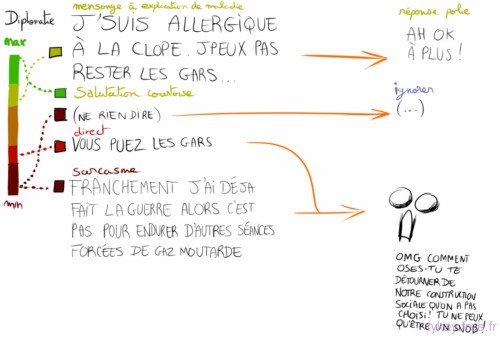 Diplomatie
max
min
mensonge à explication de malade
J'SUIS ALLERGIQUE
À LA CLOPE. J'PEUX PAS
RESTER LES GARS...
Salutation courtoise
(NE RIEN DIRE)
direct
VOUS PUEZ LES GARS
sarcasme
FRANCHEMENT J'AI DÉJA
FAIT LA GUERRE ALORS C'EST
PAS POUR ENDURER D'AUTRES SÉANCES
FORCÉES DE GAZ MOUTARDE
réponse polie
AH OK
À PLUS !
ignorer
(...)
OMG COMMENT
OSES-TU TE
DÉTOURNER DE
NOTRE CONSTRUCTION
SOCIALE QU'ON A PAS
CHOISI! TU NE PEUX
QU'ÊTRE UN SNOB!